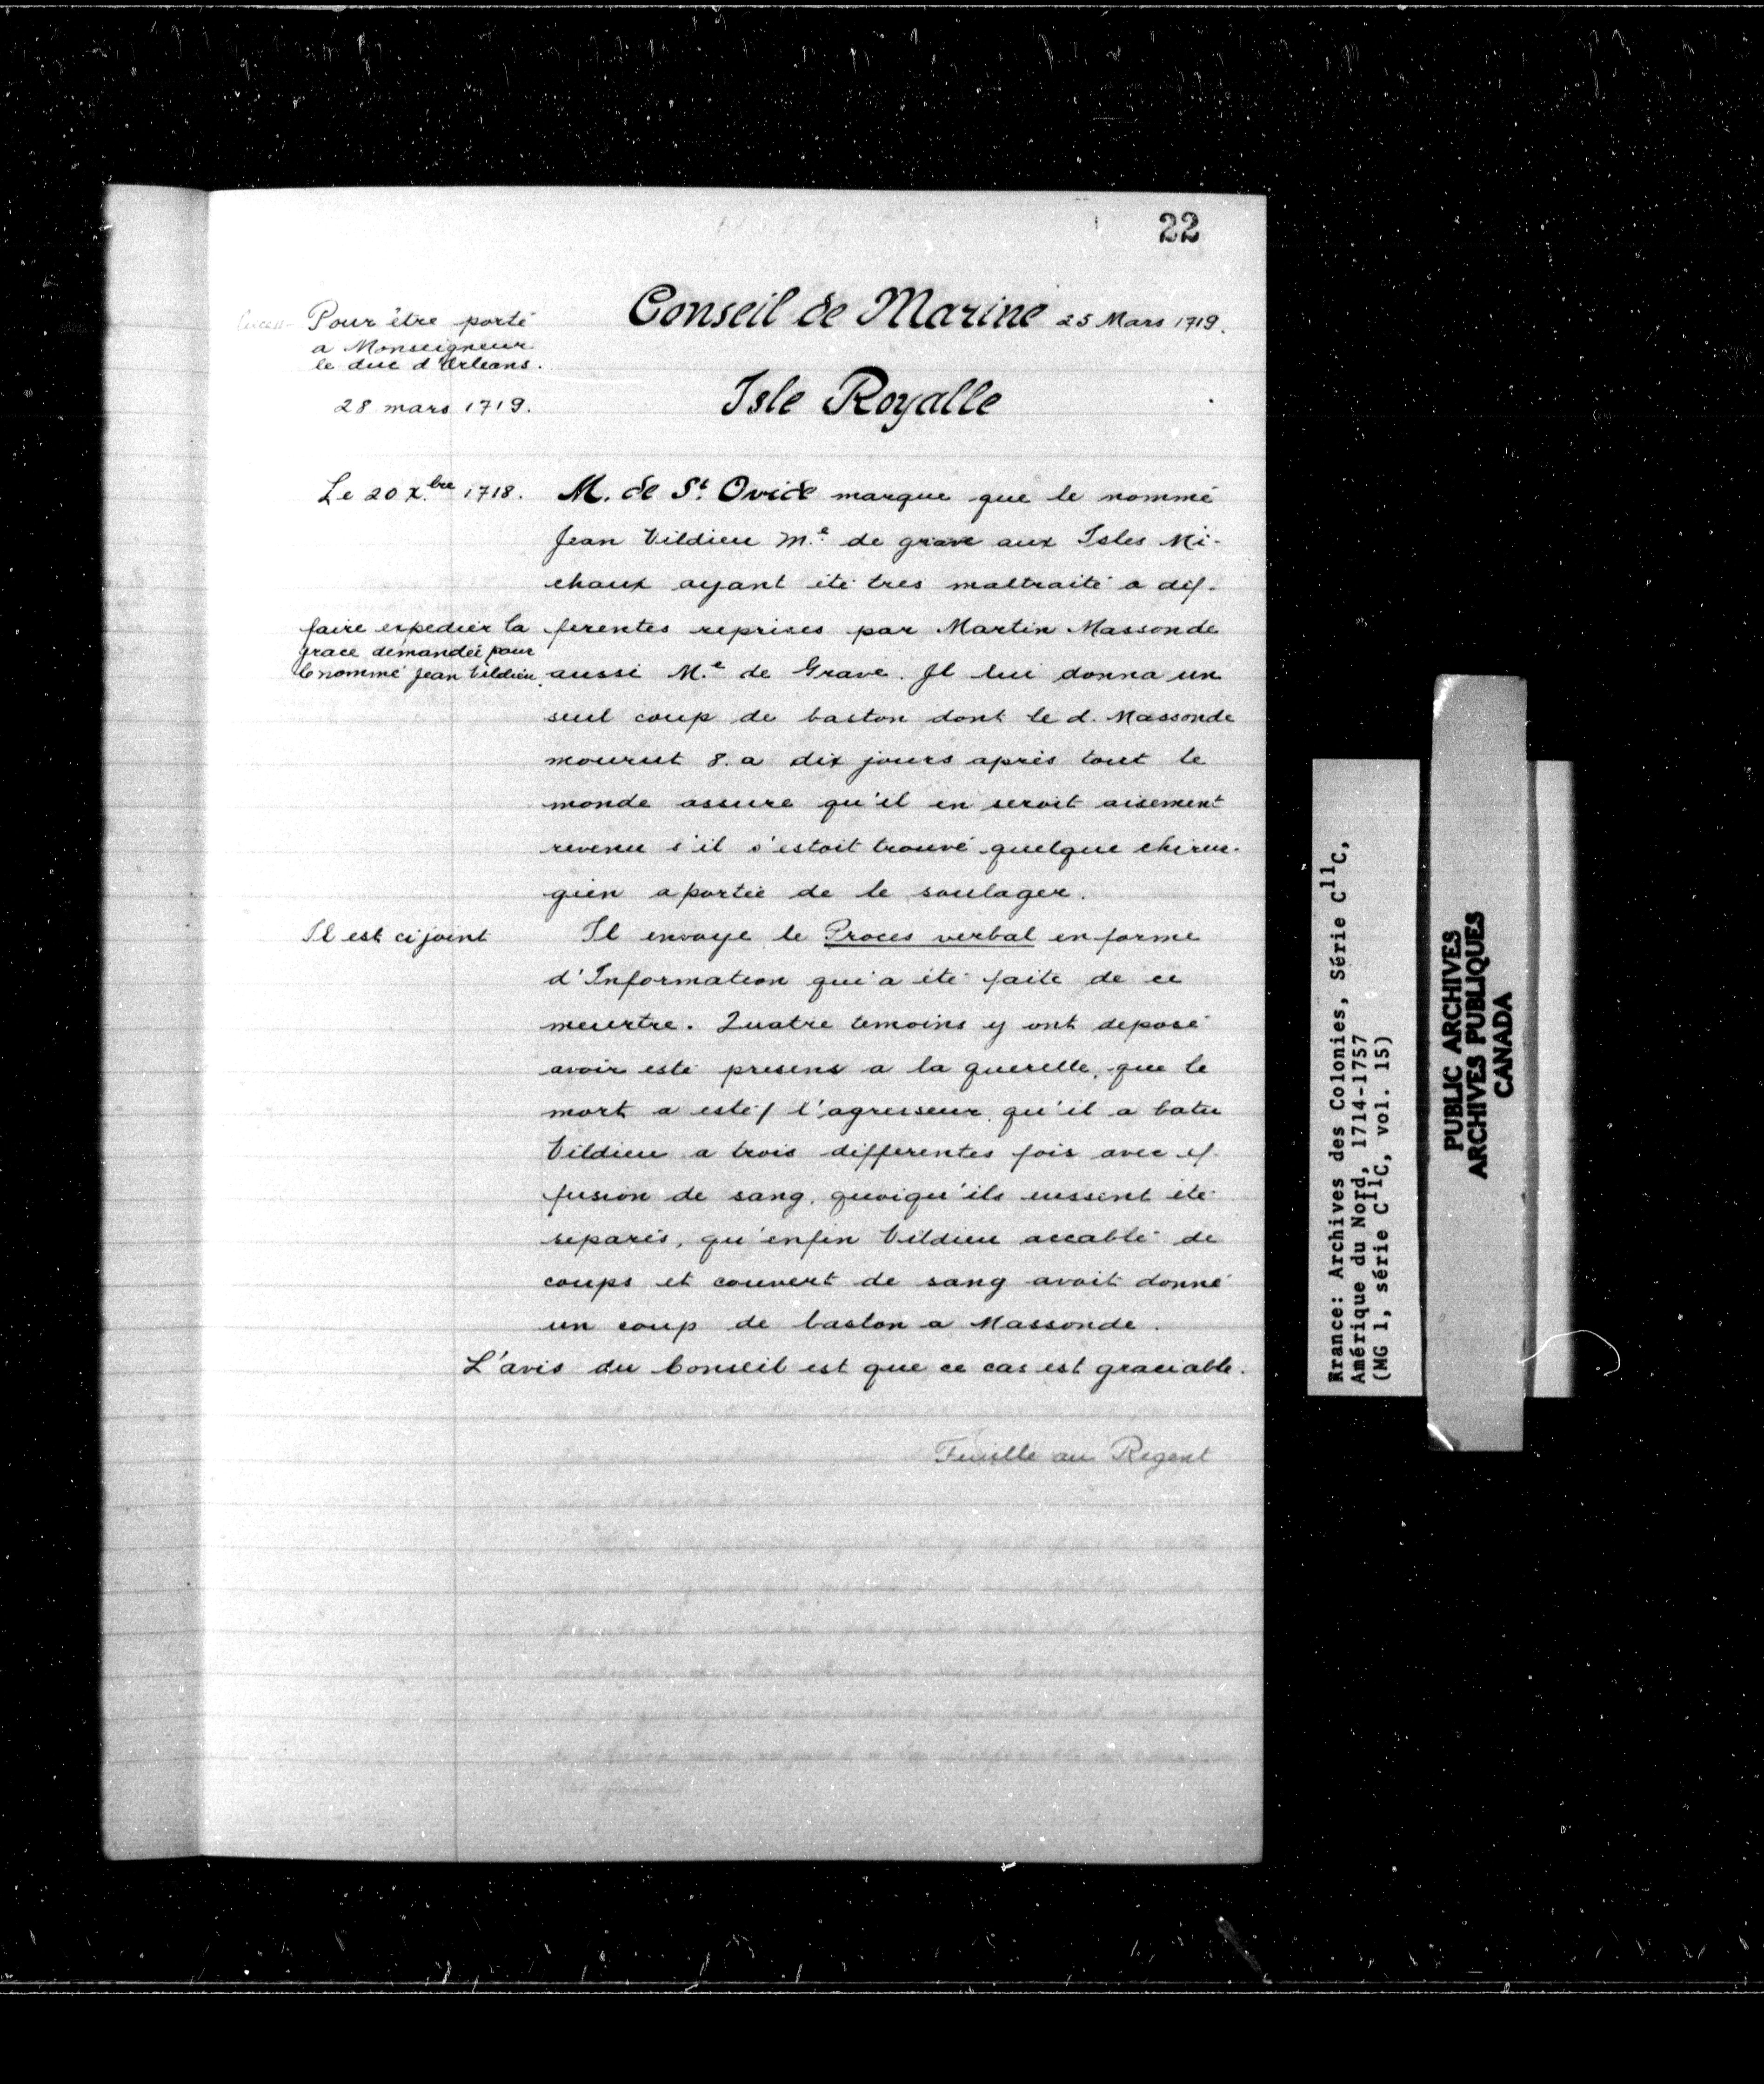 22
Pour être porté
a Monseigneur
le duc d'Orleans.
28 mars 1719.
Conseil de Marine 25 Mars 1719.
Isle Royalle
Le 20 Xbre 1718.
M. de St. Ovide marque que le nommé
Jean Vildieu Me. de grave aux Isles Mi-
chaux ayant été tres maltraité a dif-
ferentes reprises par Martin Massonde
aussi Me. de Grave. Il lui donna un
seul coup de baston dont le d. Massonde
mourut 8. a dix jours après tout le
monde assure qu'il en seroit aisement
revenu s'il s'estoit trouvé quelque chirur-
gien a portée de le soulager.
faire expedier la
grace demandée pour
le nommé Jean Vildieu.
Il est ci joint
Il envoye le Proces verbal en forme
d'Information qui a été faite de ce
meurtre. Quatre temoins y ont deposé
avoir esté presens a la querelle, que le
mort a esté l'agresseur, qu'il a batu
Vildieu a trois differentes fois avec ef-
fusion de sang, quoiqu'ils eussent été
separés, qu'enfin Vildieu accablé de
coups et couvert de sang avoit donné
un coup de baston a Massonde.
L'avis du Conseil est que ce cas est graciable.
Feuille au Regent
Rrance: Archives des Colonies, Série C11C,
Amérique du Nord, 1714-1757
(MG 1, série C11C, vol. 15)
PUBLIC ARCHIVES
ARCHIVES PUBLIQUES
CANADA